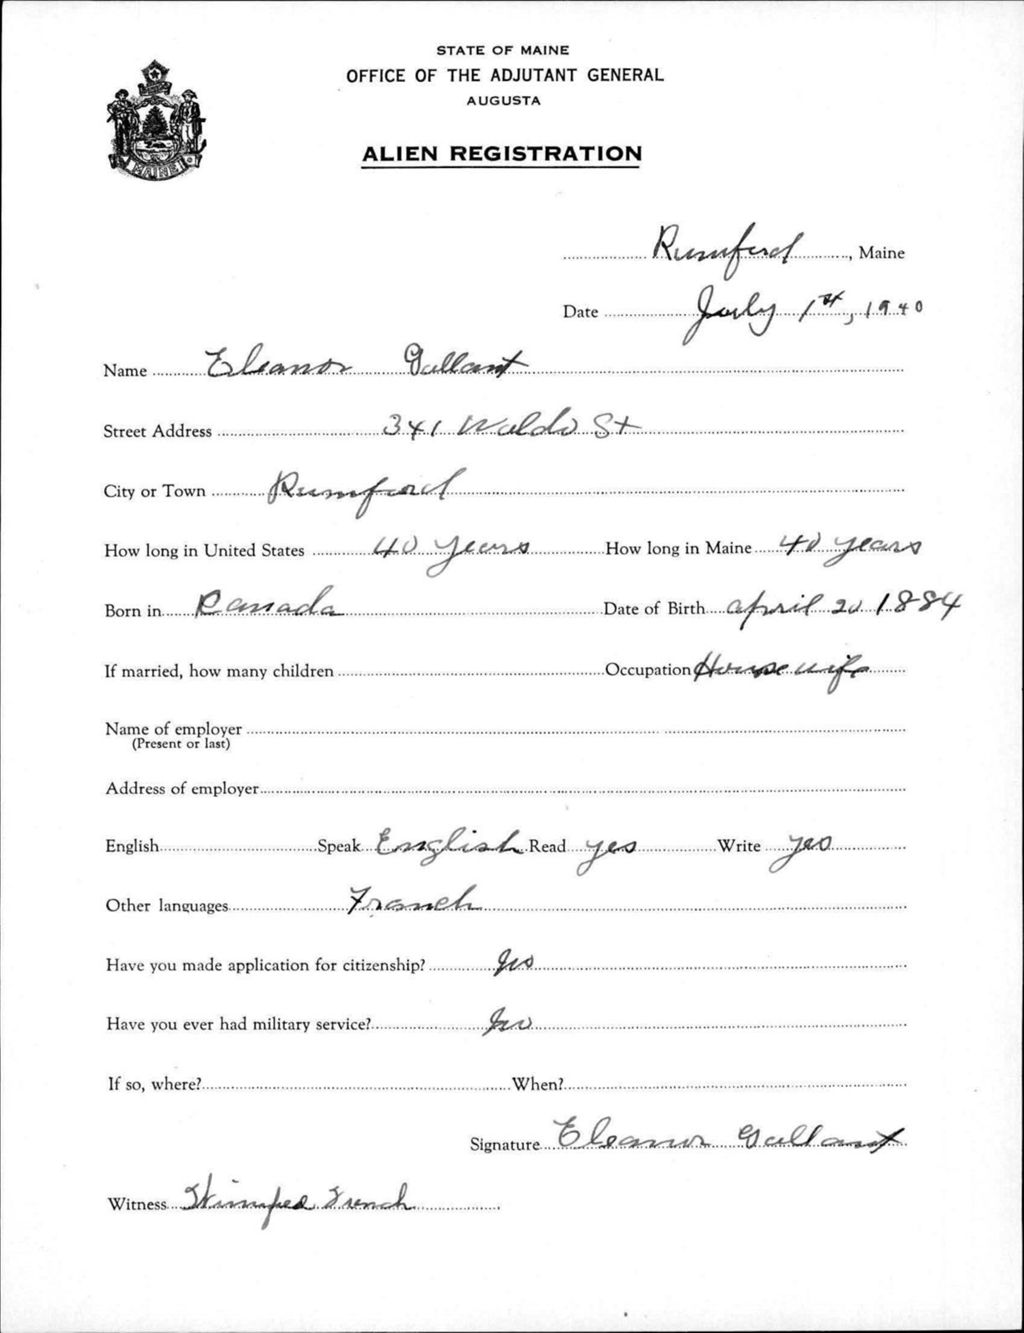 STATE OF MAINE
OFFICE OF THE ADJUTANT GENERAL
AUGUSTA
ALIEN REGISTRATION
MAINE
Rumford, Maine
Date July 1st, 1940
Name Eleanor Gallant
Street Address 341 Waldo St
City or Town Rumford
How long in United States 40 years How long in Maine 40 years
Born in Canada Date of Birth april 20 1884
If married, how many children Occupation House wife
Name of employer
(Present or last)
Address of employer
English Speak English Read yes Write yes
Other languages French
Have you made application for citizenship? No
Have you ever had military service? No
If so, where? When?
Signature Eleanor Gallant
Witness French